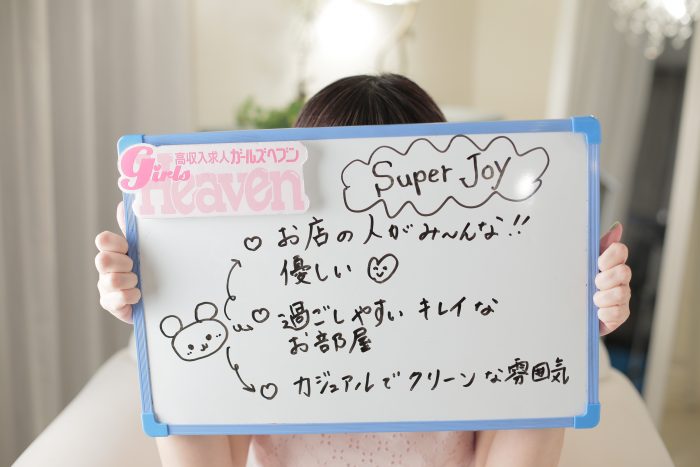 高収入求人ガールズヘブン
Girls
Heaven
Super Joy
お店の人がみ〜んな!!
優しい
過ごしやすい キレイな
お部屋
カジュアルでクリーンな雰囲気